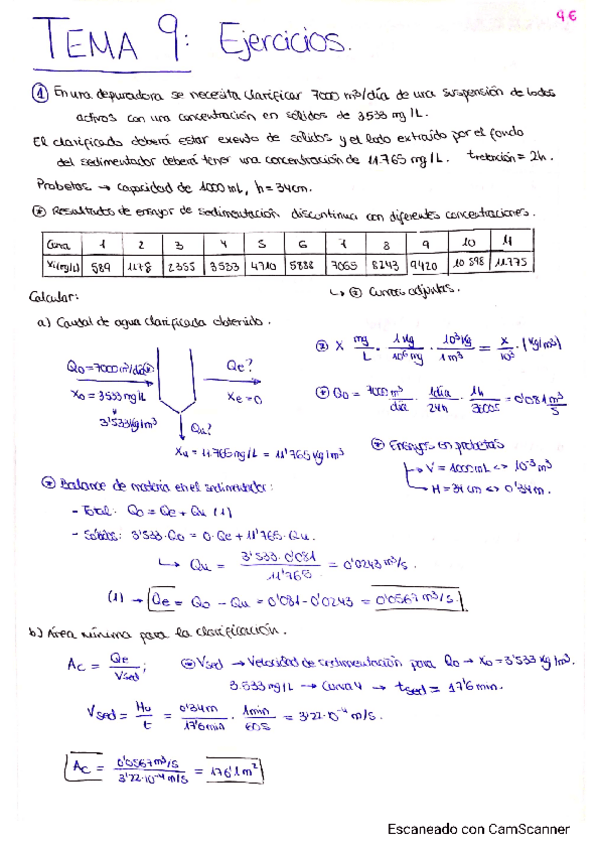 9€
TEMA 9: Ejercicios.
① En una depuradora se necesita clarificar 7000 m³/día de una suspensión de lodos
activos con una concentración en sólidos de 3533 mg/L.
El clarificado deberá estar exento de sólidos y el lodo extraído por el fondo
del sedimentador deberá tener una concentración de 11.765 mg/L. tretención = 2h.
Probetas → capacidad de 1000 mL, h = 34cm.
⊛ Resultados de ensayos de sedimentación discontinua con diferentes concentraciones.
Curva 1 2 3 4 5 6 7 8 9 10 11
Xi(mg/L) 589 1178 2355 3533 4710 5888 7065 8243 9420 10598 11775
Calcular: ↳ ⊛ Curvas adjuntas.
a) Caudal de agua clarificada obtenido.
Q0 = 7000 m³/día Qe?
X0 = 3533 mg/L Xe = 0
3'533 kg/m³
Qu?
Xu = 11.765 mg/L = 11'765 kg/m³
⊛ X mg/L · 1kg/10⁶mg · 10³kg/1m³ = X/10³ (kg/m³)
⊛ Q0 = 7000 m³/día · 1día/24h · 1h/3600s = 0'081 m³/s
⊛ Ensayos en probetas
↳ V = 1000 mL <-> 10⁻³ m³
↳ H = 34 cm <-> 0'34 m.
⊛ Balance de materia en el sedimentador:
- Total: Q0 = Qe + Qu (1)
- Sólidos: 3'533·Q0 = 0·Qe + 11'765·Qu.
↳ Qu = 3'533·0'081 / 11'765 = 0'0243 m³/s.
(1) → Qe = Q0 - Qu = 0'081 - 0'0243 = 0'0567 m³/s.
b) Área mínima para la clarificación.
Ac = Qe/Vsed; ⊛ Vsed → Velocidad de sedimentación para Q0 → X0 = 3'533 kg/m³.
3.533 mg/L → Curva 4 → tsed = 17'6 min.
Vsed = Hu/t = 0'34m/17'6min · 1min/60s = 3'22·10⁻⁴ m/s.
Ac = 0'0567 m³/s / 3'22·10⁻⁴ m/s = 176'1 m²
Escaneado con CamScanner